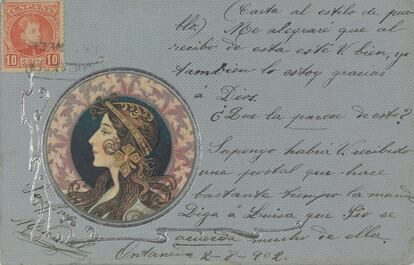 ESPAÑA
10 10
(Carta al estilo de pue
blo) Me alegraré que al
recibo de esta esté V. bien, yo
también lo estoy gracias
á Dios.
¿Que la parece de esto?
Supongo habrá V. recibido
una postal que hace
bastante tiempo la mandé
Diga á Luisa que Pio se
acuerda mucho de ella.
2-8-902.